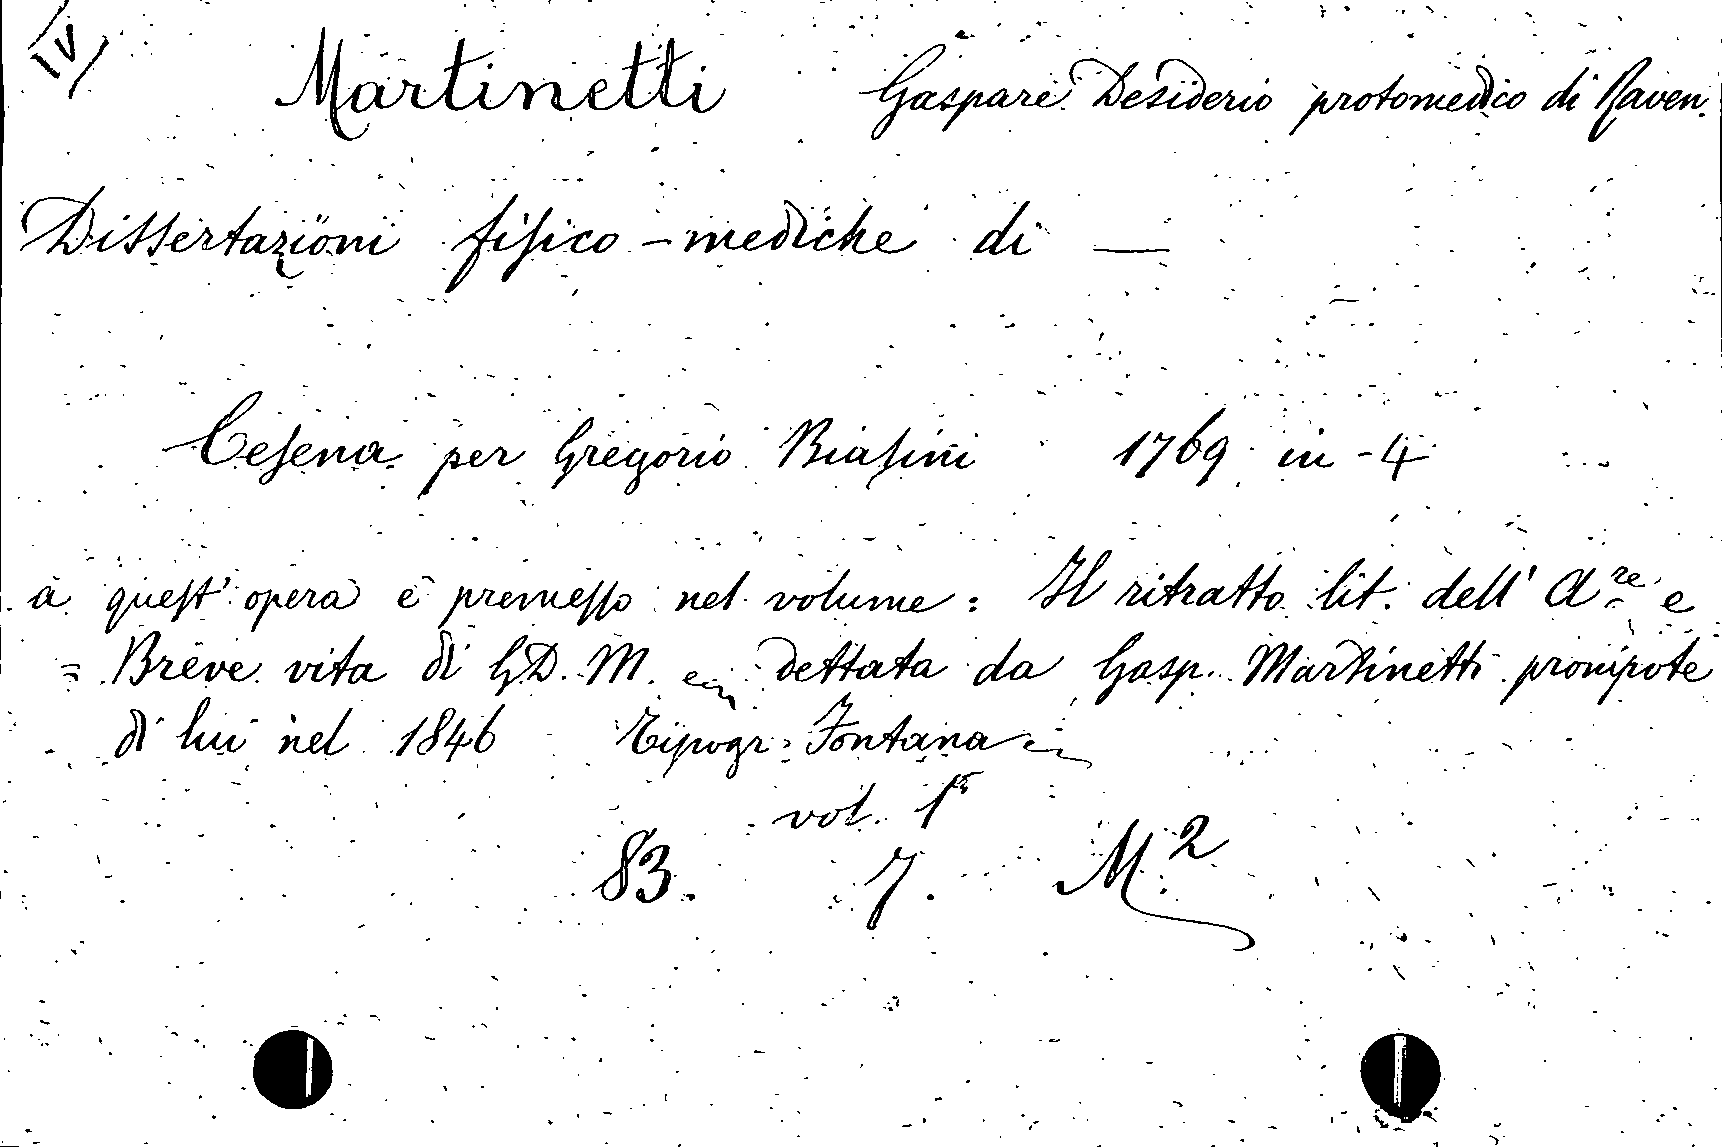 IV
Martinetti Gaspare Desiderio protomedico di Raven.
Dissertazioni fisico-mediche di —
Cesena per Gregorio Biasini 1769 in-4
a quest' opera è premesso nel volume: Il ritratto lit. dell' A.re e
= Breve vita di G.D. M. dettata da Gasp. Martinetti pronipote
di lui nel 1846 Tipogr. Fontana
vol. 1º
83. 7. M.2